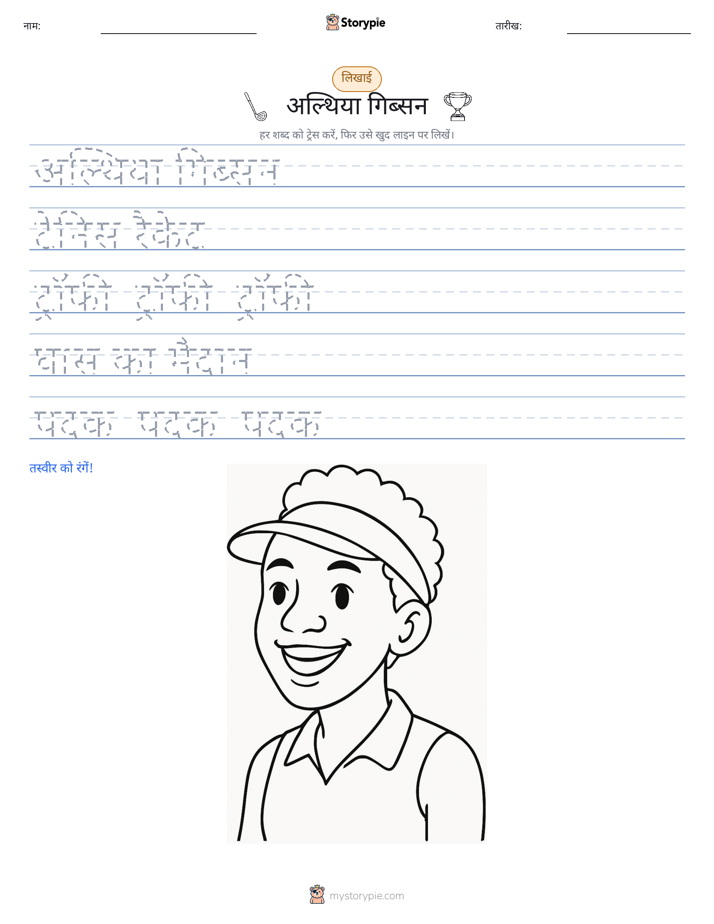 नाम:
Storypie
तारीख:
लिखाई
अल्थिया गिब्सन
हर शब्द को ट्रेस करें, फिर उसे खुद लाइन पर लिखें।
अल्थिया गिब्सन
टेनिस रैकेट
ट्रॉफी ट्रॉफी ट्रॉफी
घास का मैदान
पदक पदक पदक
तस्वीर को रंगें!
mystorypie.com